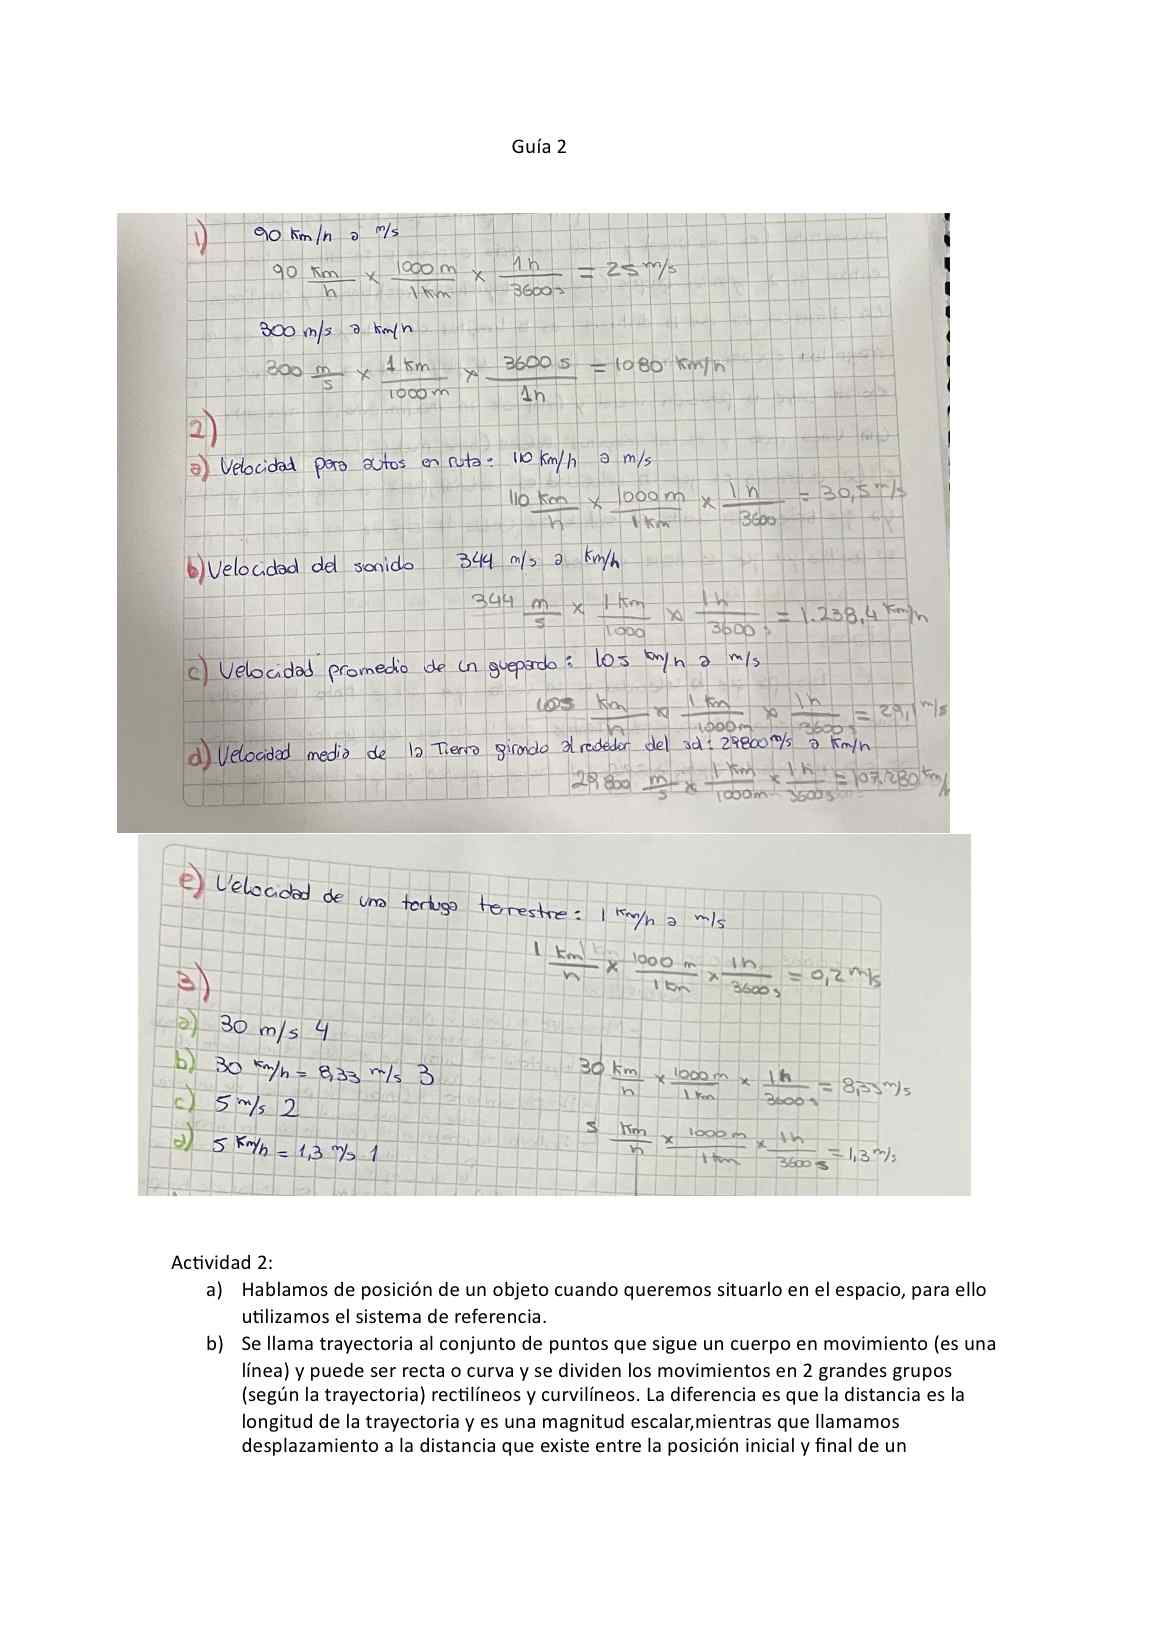 Guía 2
1) 90 Km/h a m/s
90 Km/h x 1000 m/1 Km x 1 h/3600 s = 25 m/s
300 m/s a Km/h
300 m/s x 1 Km/1000 m x 3600 s/1h = 1080 Km/h
2)
a) Velocidad para autos en ruta: 110 Km/h a m/s
110 Km/h x 1000 m/1 Km x 1 h/3600 = 30,5 m/s
b) Velocidad del sonido 344 m/s a Km/h
344 m/s x 1 Km/1000 x 1h/3600 s = 1.238,4 Km/h
c) Velocidad promedio de un guepardo: 105 Km/h a m/s
105 Km/h x 1 Km/1000m x 1h/3600 s = 29,1 m/s
d) Velocidad media de la Tierra girando alrededor del sol: 29800 m/s a Km/h
29.800 m/s x 1 Km/1000m x 1 h/3600s = 107.280 Km/
e) Velocidad de una tortuga terrestre: 1 Km/h a m/s
1 Km/h x 1000 m/1 Km x 1h/3600 s = 0,2 m/s
3)
a) 30 m/s 4
b) 30 Km/h = 8,33 m/s 3 30 Km/h x 1000 m/1 Km x 1 h/3600 s = 8,33 m/s
c) 5 m/s 2
d) 5 Km/h = 1,3 m/s 1 5 Km/h x 1000 m/1 Km x 1h/3600 s = 1,3 m/s
Actividad 2:
a) Hablamos de posición de un objeto cuando queremos situarlo en el espacio, para ello
utilizamos el sistema de referencia.
b) Se llama trayectoria al conjunto de puntos que sigue un cuerpo en movimiento (es una
línea) y puede ser recta o curva y se dividen los movimientos en 2 grandes grupos
(según la trayectoria) rectilíneos y curvilíneos. La diferencia es que la distancia es la
longitud de la trayectoria y es una magnitud escalar,mientras que llamamos
desplazamiento a la distancia que existe entre la posición inicial y final de un